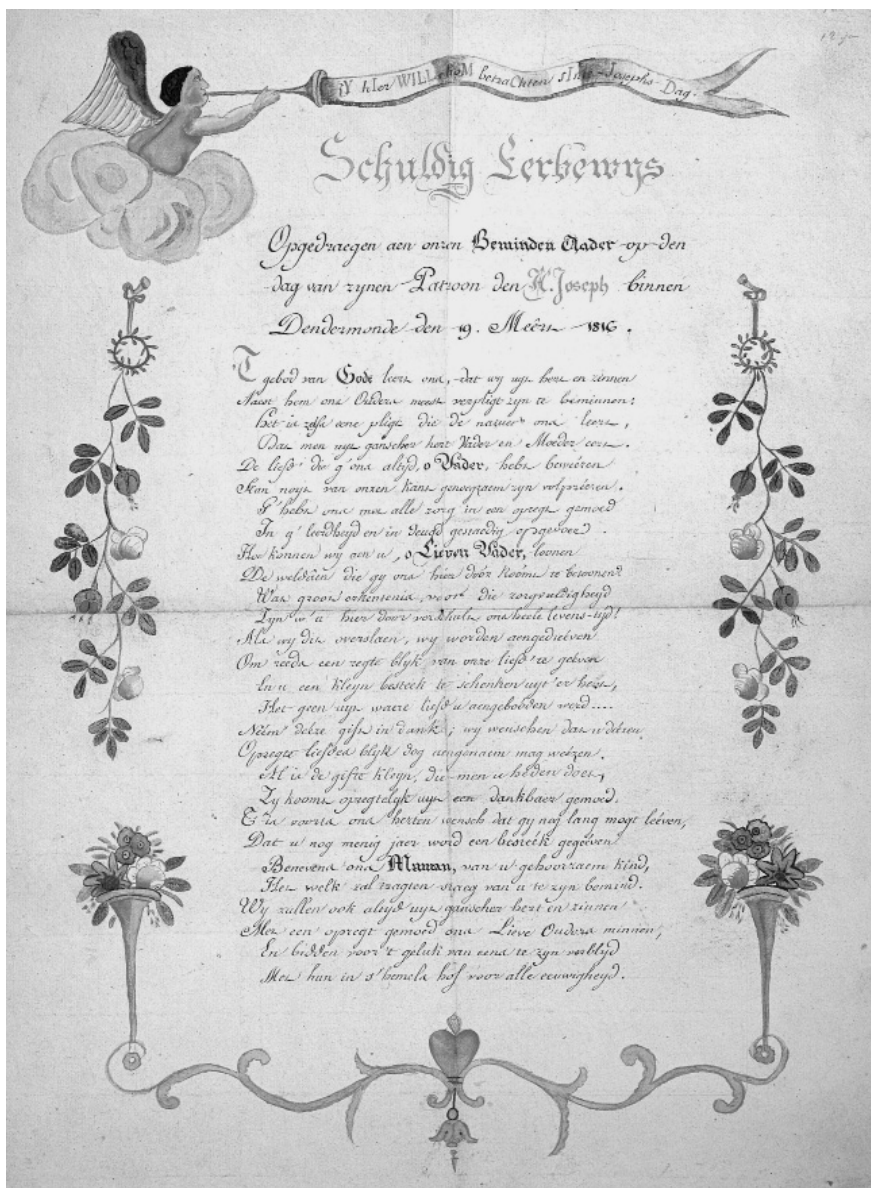 iY hIer WILLekoM betraChten sInte-Josephs-Dag.
Schuldig Eerbewys
Opgedraegen aen onzen Beminden Vader op den
dag van zynen Patroon den H. Joseph binnen
Dendermonde den 19. Meêrt 1816.
T gebod van Godt leert ons, dat wy uyt hert en zinnen
Naest hem ons Ouders meest verpligt zyn te beminnen;
Het is zelfs eene pligt die de natuer ons leert,
Dat men uyt ganscher hert Vader en Moeder eert.
De liefd' die g'ons altyd, o Vader, hebt bewézen
Kan noyt van onzen kant genoegzaem zyn volprézen.
G'hebt ons met alle zorg in een opregt gemoed
In g'leerdheyd en in deugd gestaedig opgevoed.
Hoe konnen wy aen u, o Lieven Vader, loonen
De weldâen die gy ons hier dóór koomt te betoonen?
Wat groot erkentenis, voor die zorgvuldigheyd
Zyn w'u hier door verschult ons heele levens-tyd!
Als wy dit overslaen, wy worden aengedréven
Om reeds een regte blyk van onze liefd' te geéven
En u een' kleyn besteek te schenken uyt'er hert,
Het geen uyt waere liefd u aengebooden werd....
Néém dekze gift in dank; wy wenschen dat u dézen
Opregte liefdes blyk dog aengenaem mag weézen.
Al is de gifte kleyn, die men u héden doet,
Zy koomt opregtelyk uyt een dankbaer gemoed.
T'is voorts ons herten wensch dat gy nog lang mogt leéven,
Dat u nog menig jaer word een besteék gegeéven
Benevens ons Maman, van u gehoorzaem kind,
Het welk zal tragten staeg van u te zyn bemind.
Wy zullen ook altyd uyt ganscher hert en zinnen
Met een opregt gemoed ons Lieve Ouders minnen,
En bidden voor 't geluk van eens te zyn verblyd
Met hun in s'hemels hof voor alle eeuwigheyd.